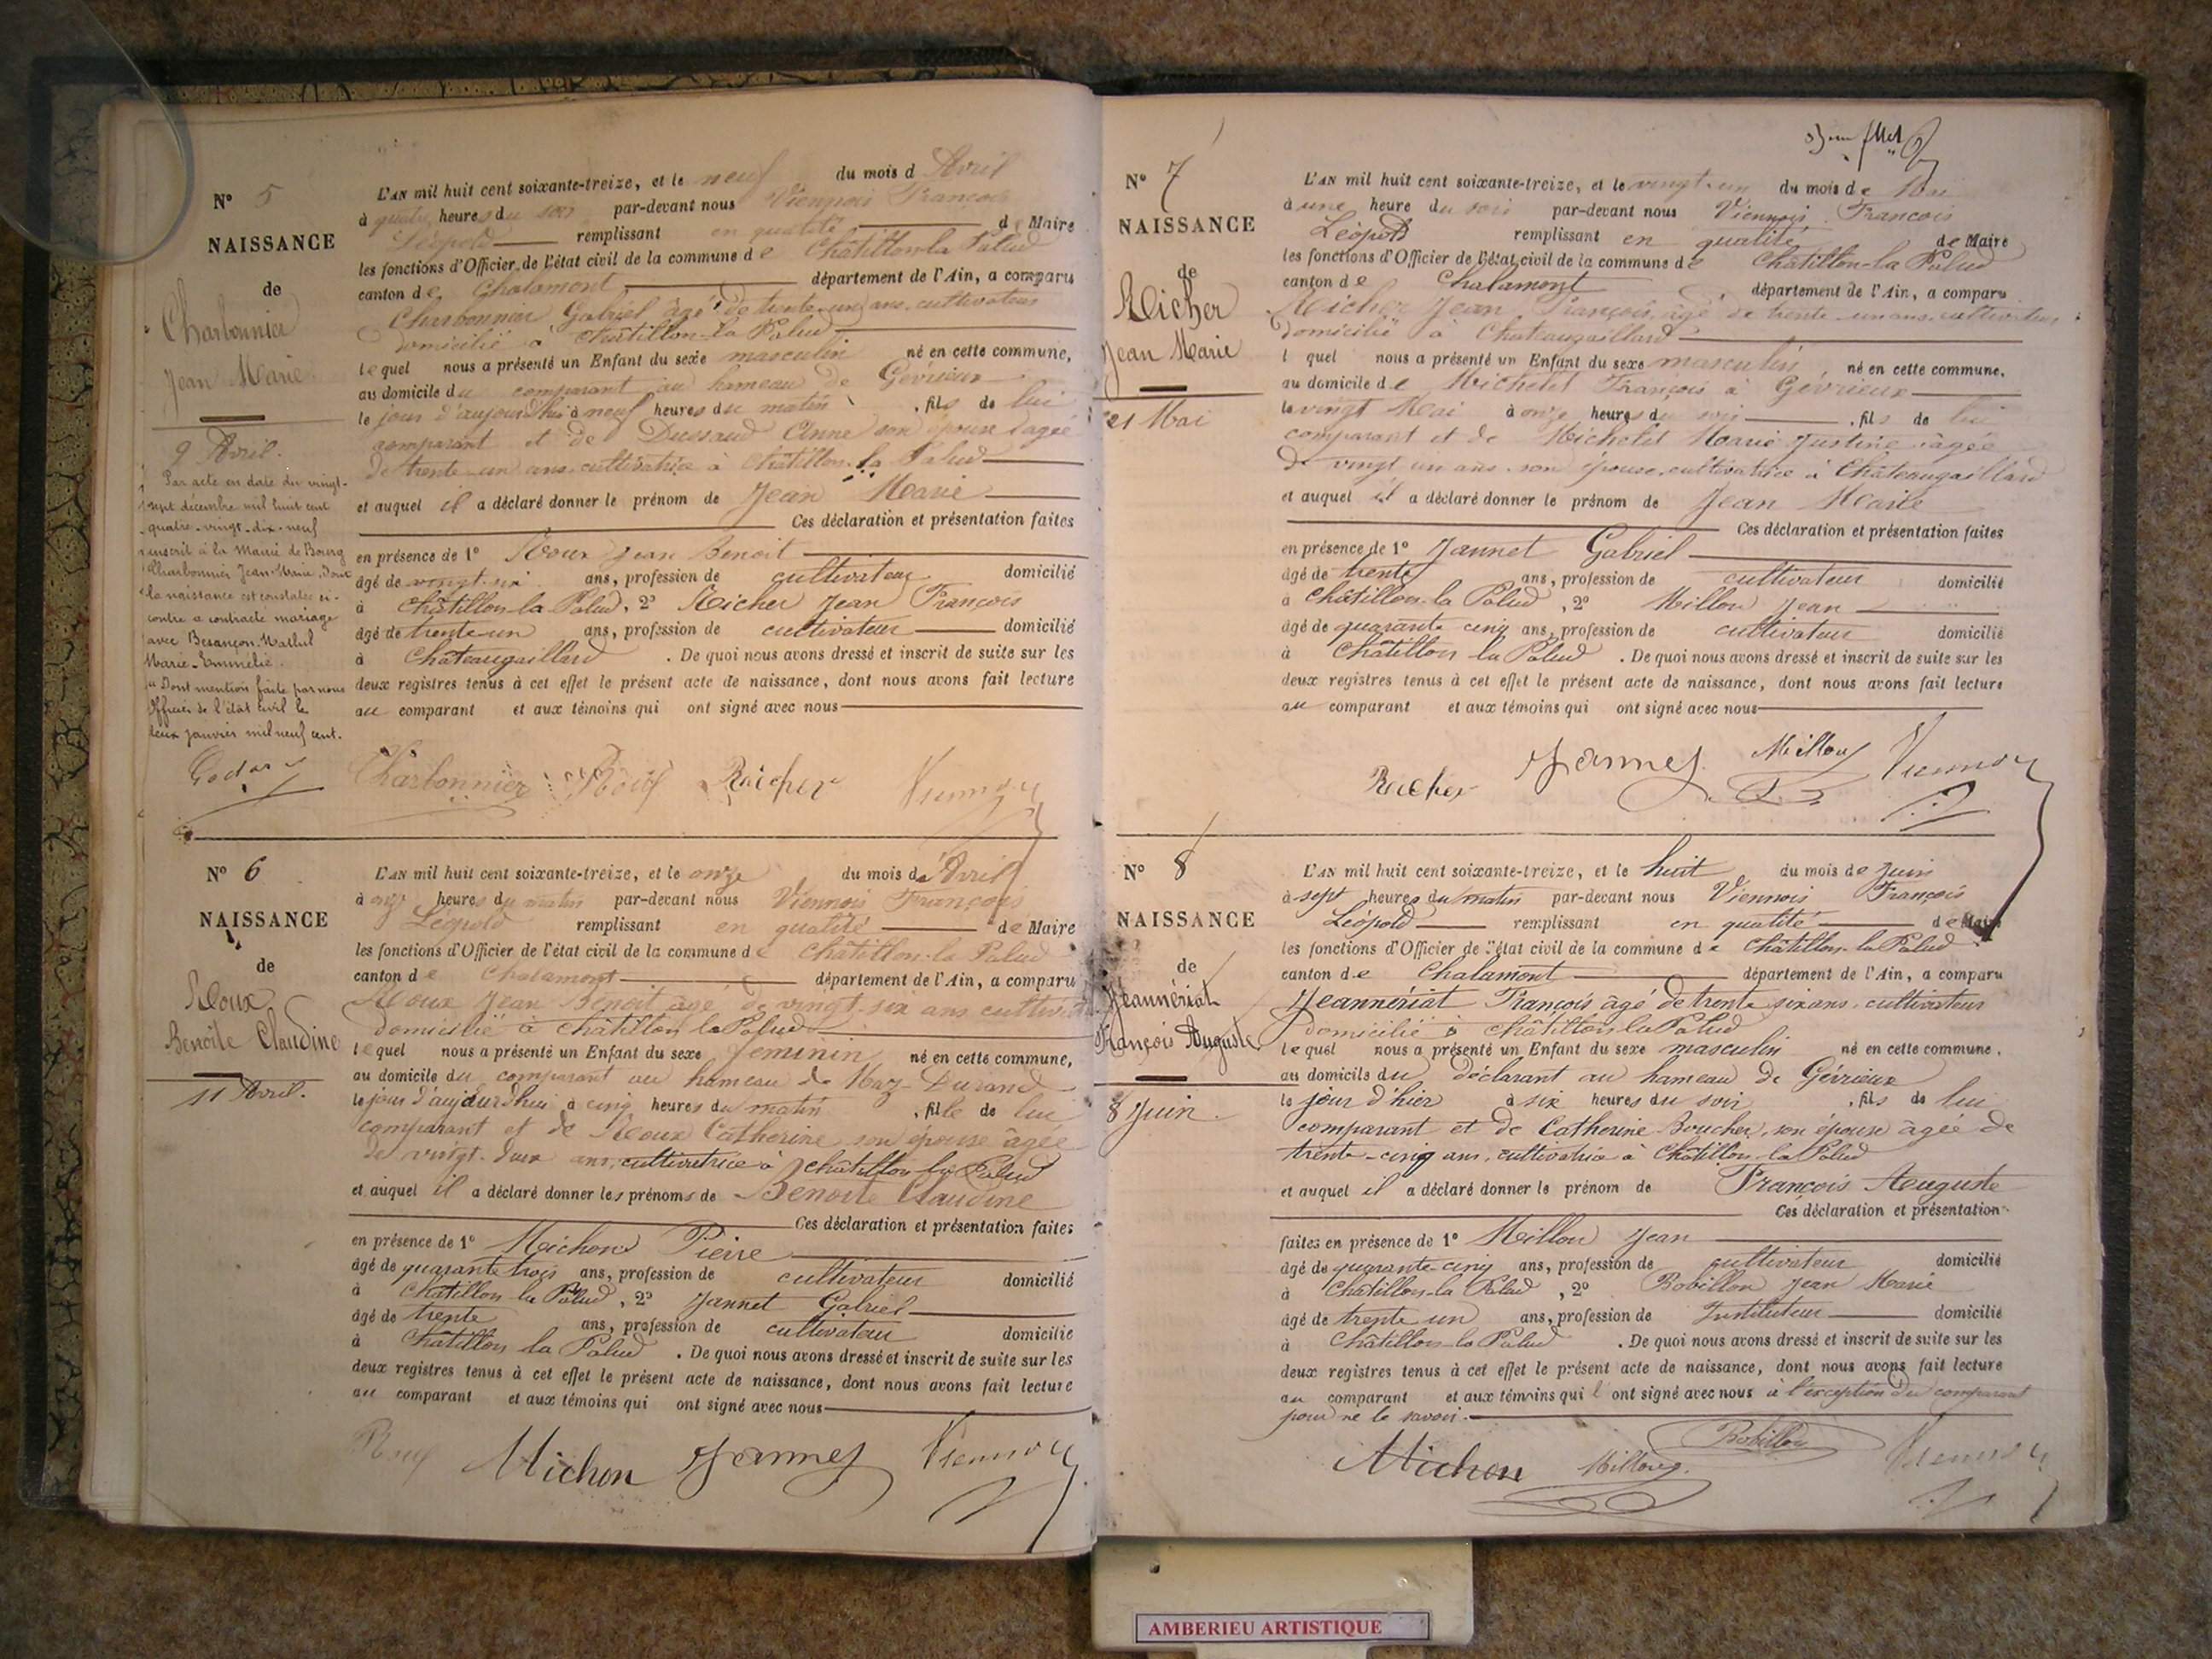 N° 5
NAISSANCE
de
Charbonnier
Jean Marie.
9 Avril.
Par acte en date du vingt-
sept décembre mil huit cent
quatre-vingt-dix-neuf
inscrit à la Mairie de Bourg
Charbonnier Jean-Marie, dont
la naissance est constatée ci-
contre a contracté mariage
avec Besançon
Marie-Emmélie.
Dont mention faite par nous
Officier de l'état civil le
deux janvier mil neuf cent.
L'AN mil huit cent soixante-treize, et le neuf du mois d Avril
à quatre heures du soir par-devant nous Viennois François
Léopold remplissant en qualité de Maire
les fonctions d'Officier de l'état civil de la commune de Châtillon-la Palud
canton de Chalamont département de l'Ain, a comparu
Charbonnier Gabriel âgé de trente-un ans, cultivateur
domicilié à Châtillon-la Palud
lequel nous a présenté un Enfant du sexe masculin né en cette commune,
au domicile du comparant au hameau de Gévrieux
le jour d'aujourd'hui à neuf heures du matin, fils de lui
comparant et de Dussaud Anne son épouse âgée
de trente-un ans cultivatrice à Châtillon-la Palud
et auquel il a déclaré donner le prénom de Jean Marie
Ces déclaration et présentation faites
en présence de 1° Roux Jean Benoit
âgé de vingt-six ans, profession de cultivateur domicilié
à Châtillon-la Palud, 2° Richer Jean François
âgé de trente-un ans, profession de cultivateur domicilié
à Châteaugaillard. De quoi nous avons dressé et inscrit de suite sur les
deux registres tenus à cet effet le présent acte de naissance, dont nous avons fait lecture
au comparant et aux témoins qui ont signé avec nous
Charbonnier Roux Richer Viennois
N° 6
NAISSANCE
de
Roux
Benoite Claudine
11 Avril.
L'AN mil huit cent soixante-treize, et le onze du mois de Avril
à onze heures du matin par-devant nous Viennois François
Léopold remplissant en qualité de Maire
les fonctions d'Officier de l'état civil de la commune de Châtillon-la Palud
canton de Chalamont département de l'Ain, a comparu
Roux Jean Benoit âgé de vingt-six ans
domicilié à Châtillon la Palud
lequel nous a présenté un Enfant du sexe féminin né en cette commune,
au domicile du comparant au hameau de Maz-Durand
le jour d'aujourd'hui à cinq heures du matin, fille de lui
comparant et de Roux Catherine son épouse âgée
de vingt-deux ans, cultivatrice à Châtillon la Palud
et auquel il a déclaré donner les prénoms de Benoite Claudine
Ces déclaration et présentation faites
en présence de 1° Michon Pierre
âgé de quarante trois ans, profession de cultivateur domicilié
à Châtillon la Palud, 2° Jannet Gabriel
âgé de trente ans, profession de cultivateur domicilié
à Châtillon la Palud. De quoi nous avons dressé et inscrit de suite sur les
deux registres tenus à cet effet le présent acte de naissance, dont nous avons fait lecture
au comparant et aux témoins qui ont signé avec nous
Roux Michon Jannet Viennois
N° 7
NAISSANCE
de
Richer
Jean Marie
21 Mai
L'AN mil huit cent soixante-treize, et le vingt-un du mois de Mai
à une heure du soir par-devant nous Viennois François
Léopold remplissant en qualité de Maire
les fonctions d'Officier de l'état civil de la commune de Châtillon-la Palud
canton de Chalamont département de l'Ain, a comparu
Richer Jean François, âgé de trente-un ans, cultivateur
domicilié à Châteaugaillard
lequel nous a présenté un Enfant du sexe masculin né en cette commune,
au domicile de Michelet François à Gévrieux
le vingt Mai à onze heures du soir, fils de lui
comparant et de Michelet Marie Justine âgée
de vingt un ans, son épouse, cultivatrice à Châteaugaillard
et auquel il a déclaré donner le prénom de Jean Marie
Ces déclaration et présentation faites
en présence de 1° Jannet Gabriel
âgé de trente ans, profession de cultivateur domicilié
à Châtillon-la Palud, 2° Millon Jean
âgé de quarante cinq ans, profession de cultivateur domicilié
à Châtillon la Palud. De quoi nous avons dressé et inscrit de suite sur les
deux registres tenus à cet effet le présent acte de naissance, dont nous avons fait lecture
au comparant et aux témoins qui ont signé avec nous
Richer Jannet Millon Viennois
N° 8
NAISSANCE
de
Jeannériat
François Auguste
8 Juin.
L'AN mil huit cent soixante-treize, et le huit du mois de Juin
à sept heures du matin par-devant nous Viennois François
Léopold remplissant en qualité de Maire
les fonctions d'Officier de l'état civil de la commune de Châtillon-la Palud
canton de Chalamont département de l'Ain, a comparu
Jeannériat François âgé de trente six ans, cultivateur
domicilié à Châtillon la Palud
lequel nous a présenté un Enfant du sexe masculin né en cette commune,
au domicile du déclarant au hameau de Gévrieux
le jour d'hier à six heures du soir, fils de lui
comparant et de Catherine Boucher, son épouse âgée de
trente-cinq ans, cultivatrice à Châtillon-la Palud
et auquel il a déclaré donner le prénom de François Auguste
Ces déclaration et présentation
faites en présence de 1° Millon Jean
âgé de quarante-cinq ans, profession de cultivateur domicilié
à Châtillon-la Palud, 2° Robillon Jean Marie
âgé de trente un ans, profession de Instituteur domicilié
à Châtillon-la Palud. De quoi nous avons dressé et inscrit de suite sur les
deux registres tenus à cet effet le présent acte de naissance, dont nous avons fait lecture
au comparant et aux témoins qui l'ont signé avec nous à l'exception du comparant
pour ne le savoir.
Michon Millon Robillon Viennois
AMBERIEU ARTISTIQUE